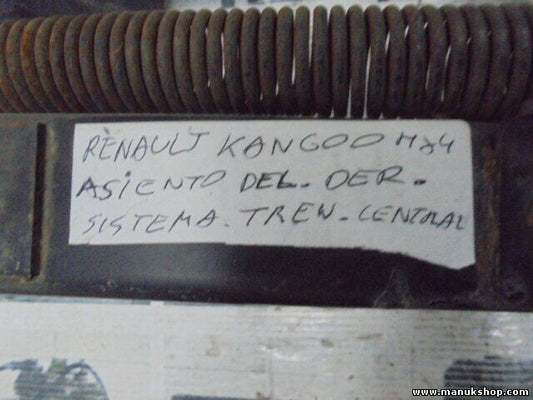 RENAULT KANGOO
ASIENTO DEL. DER.
SISTEMA. TREN. CENTRAL
www.manukshop.com